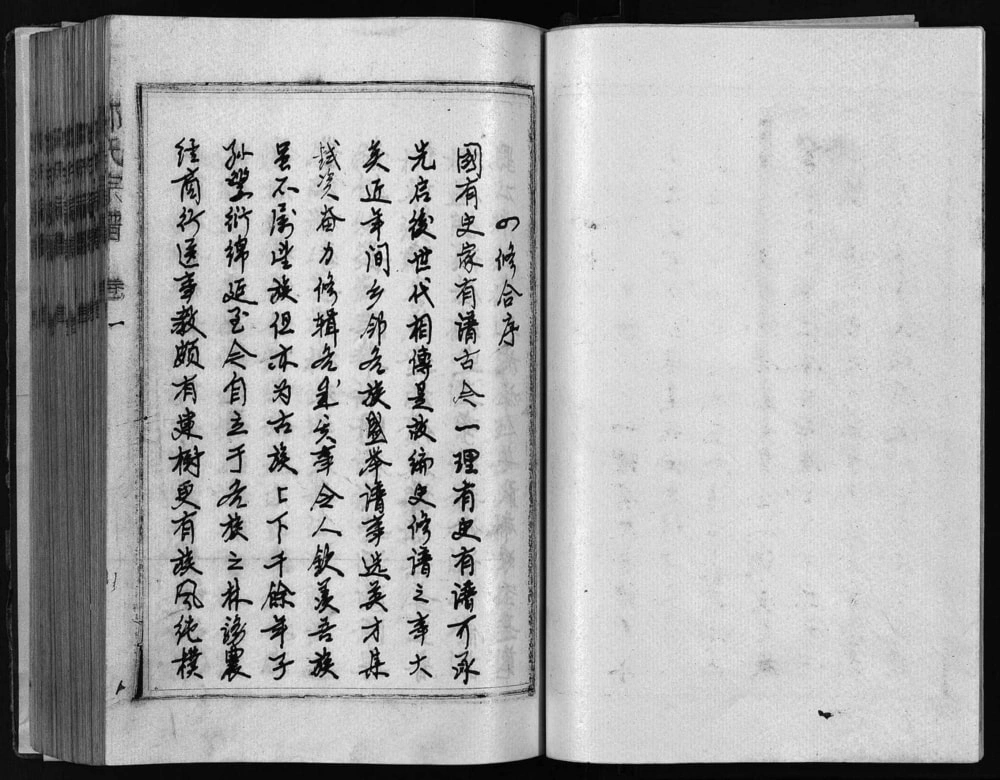 四修合序
國有史家有譜古今一理有史有譜可承
先启後世代相傳是故编史修譜之事大
矣近年间乡邻各族盛举譜事选英才集
钱资奋力修辑各成实事令人欽羡吾族
虽不属望族但亦为古族上下千餘年子
孙繁衍绵延至今自立于各族之林务農
经商行医事教颇有建樹更有族风纯樸
氏宗譜 卷一